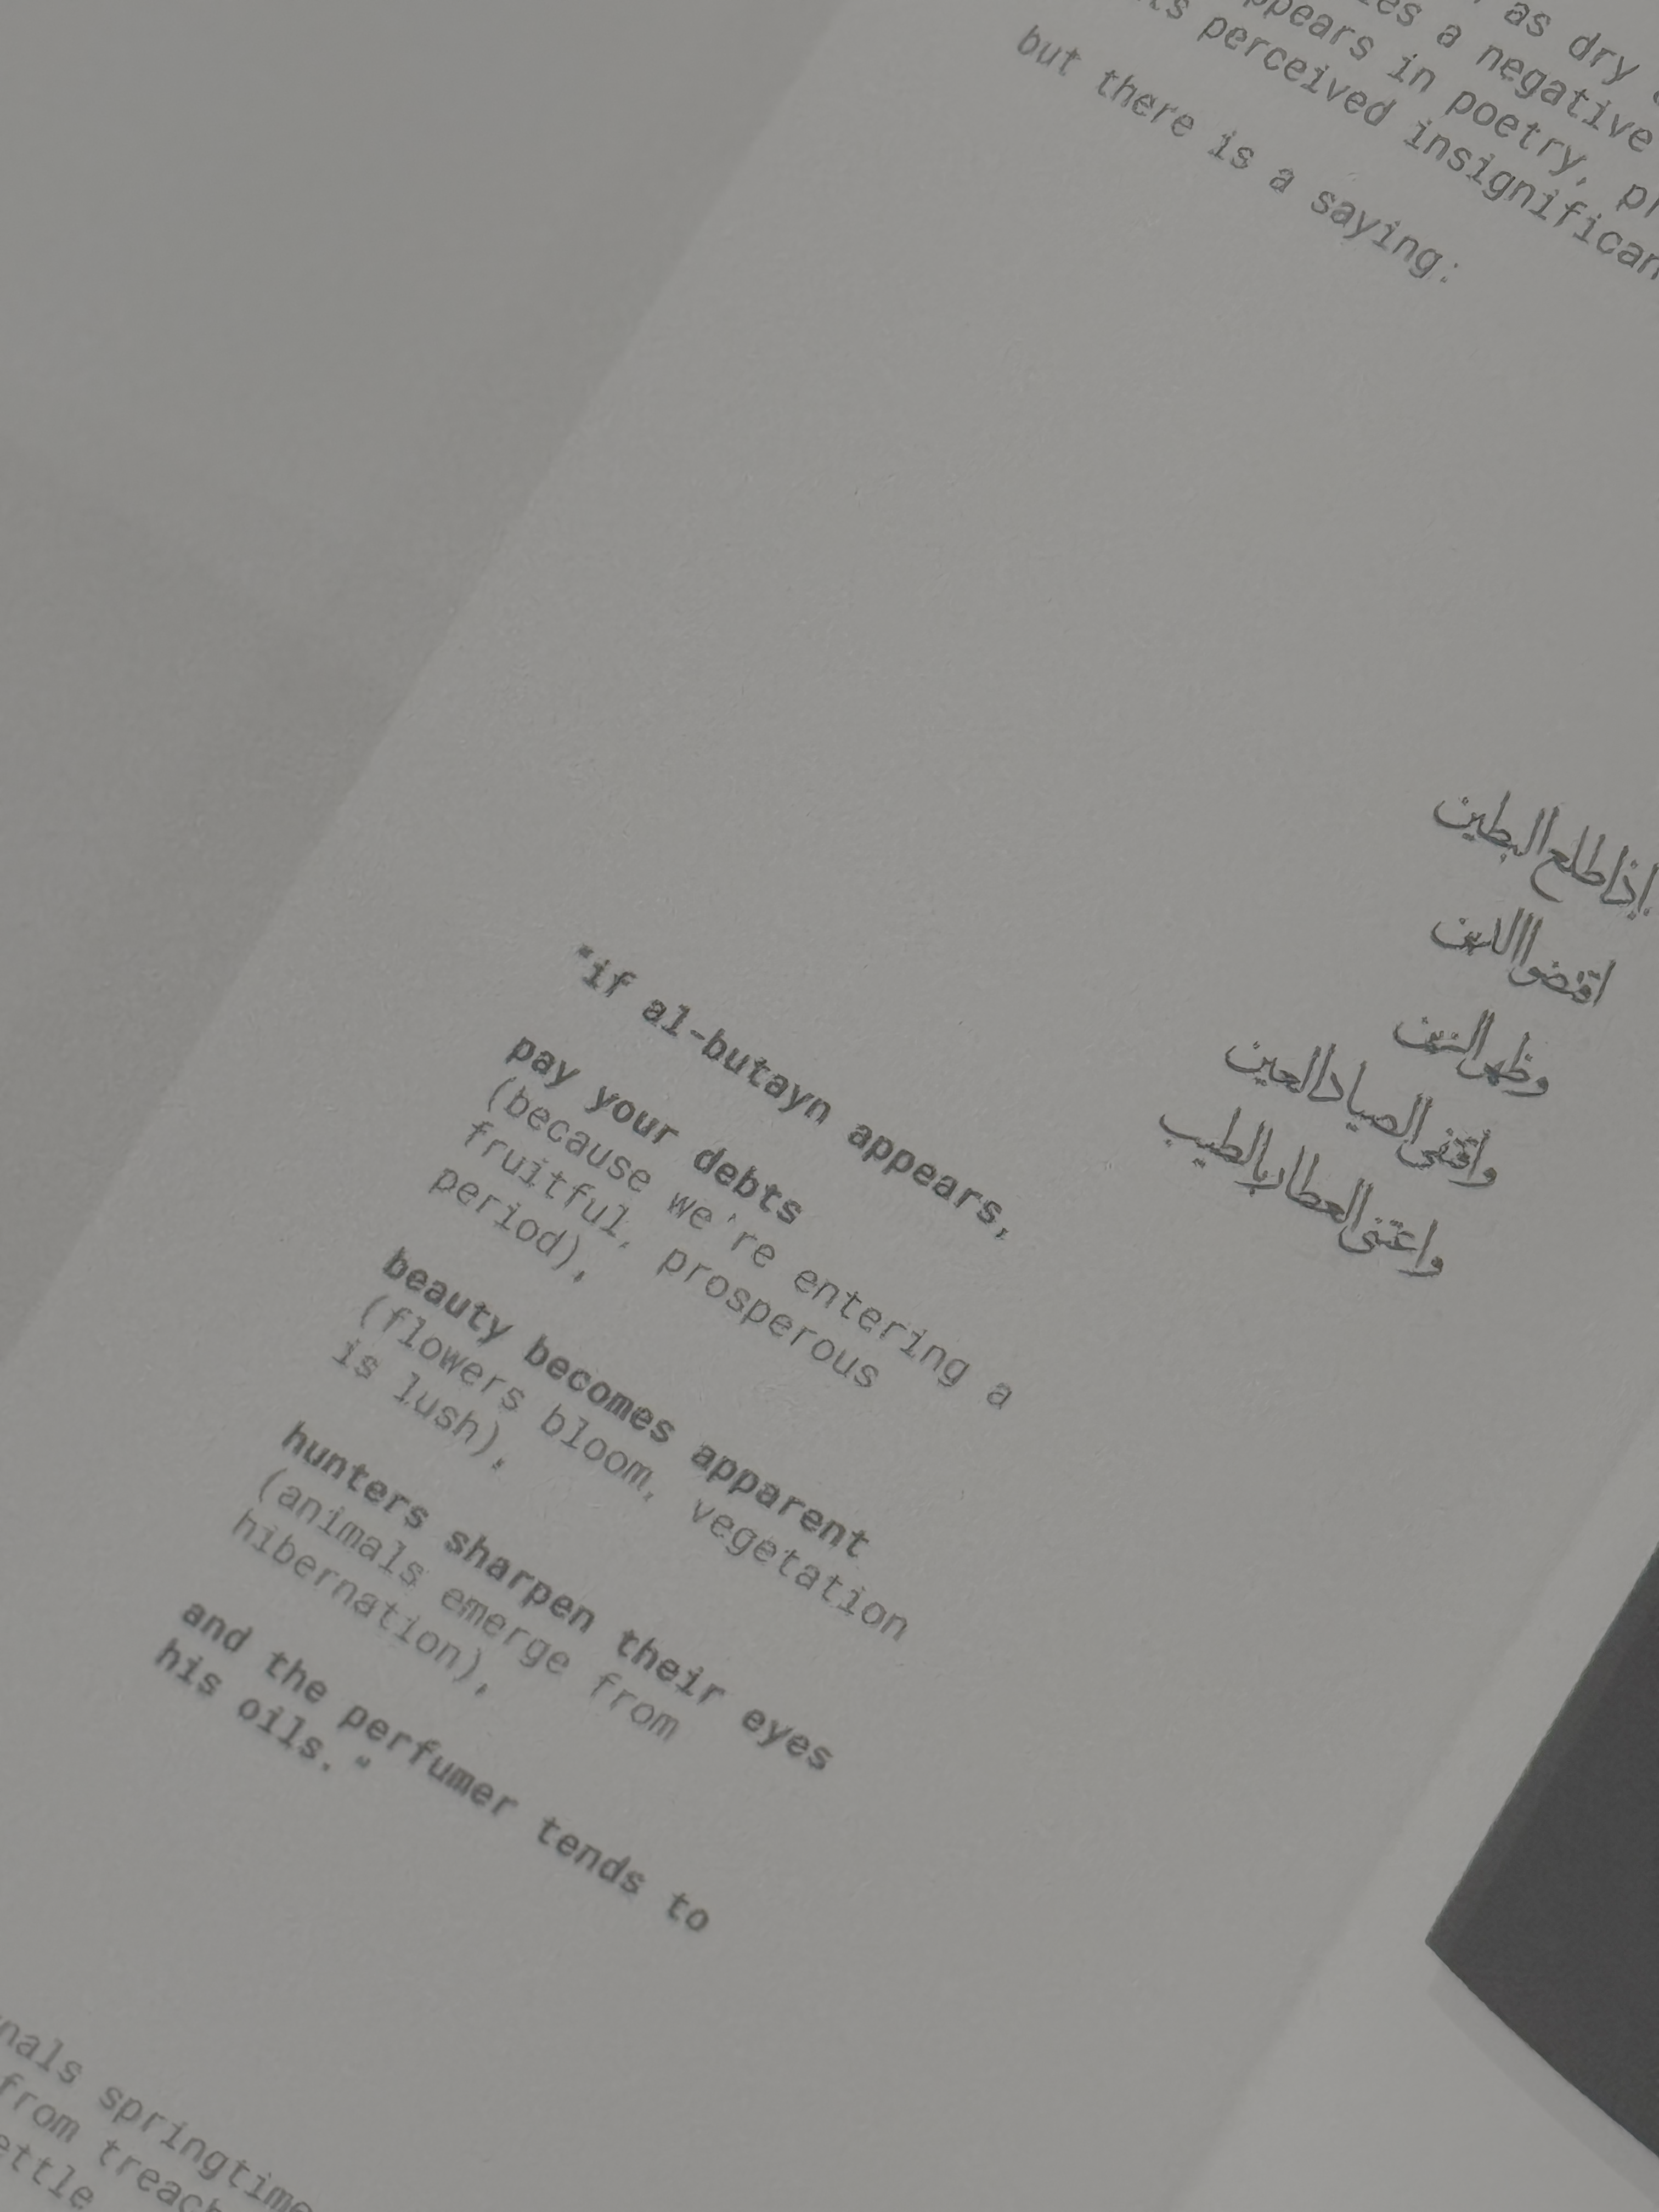 as dry
a negative
appears in poetry,
perceived insignifican
but there is a saying:
إذا طلع البطين
اقضوا الدين
وظهر الزين
واقتفى الصياد العين
واعتنى العطار بالطيب
"if al-butayn appears,
pay your debts
(because we're entering a
fruitful, prosperous
period),
beauty becomes apparent
(flowers bloom, vegetation
is lush),
hunters sharpen their eyes
(animals emerge from
hibernation),
and the perfumer tends to
his oils."
nals springtime
from treach
ettle